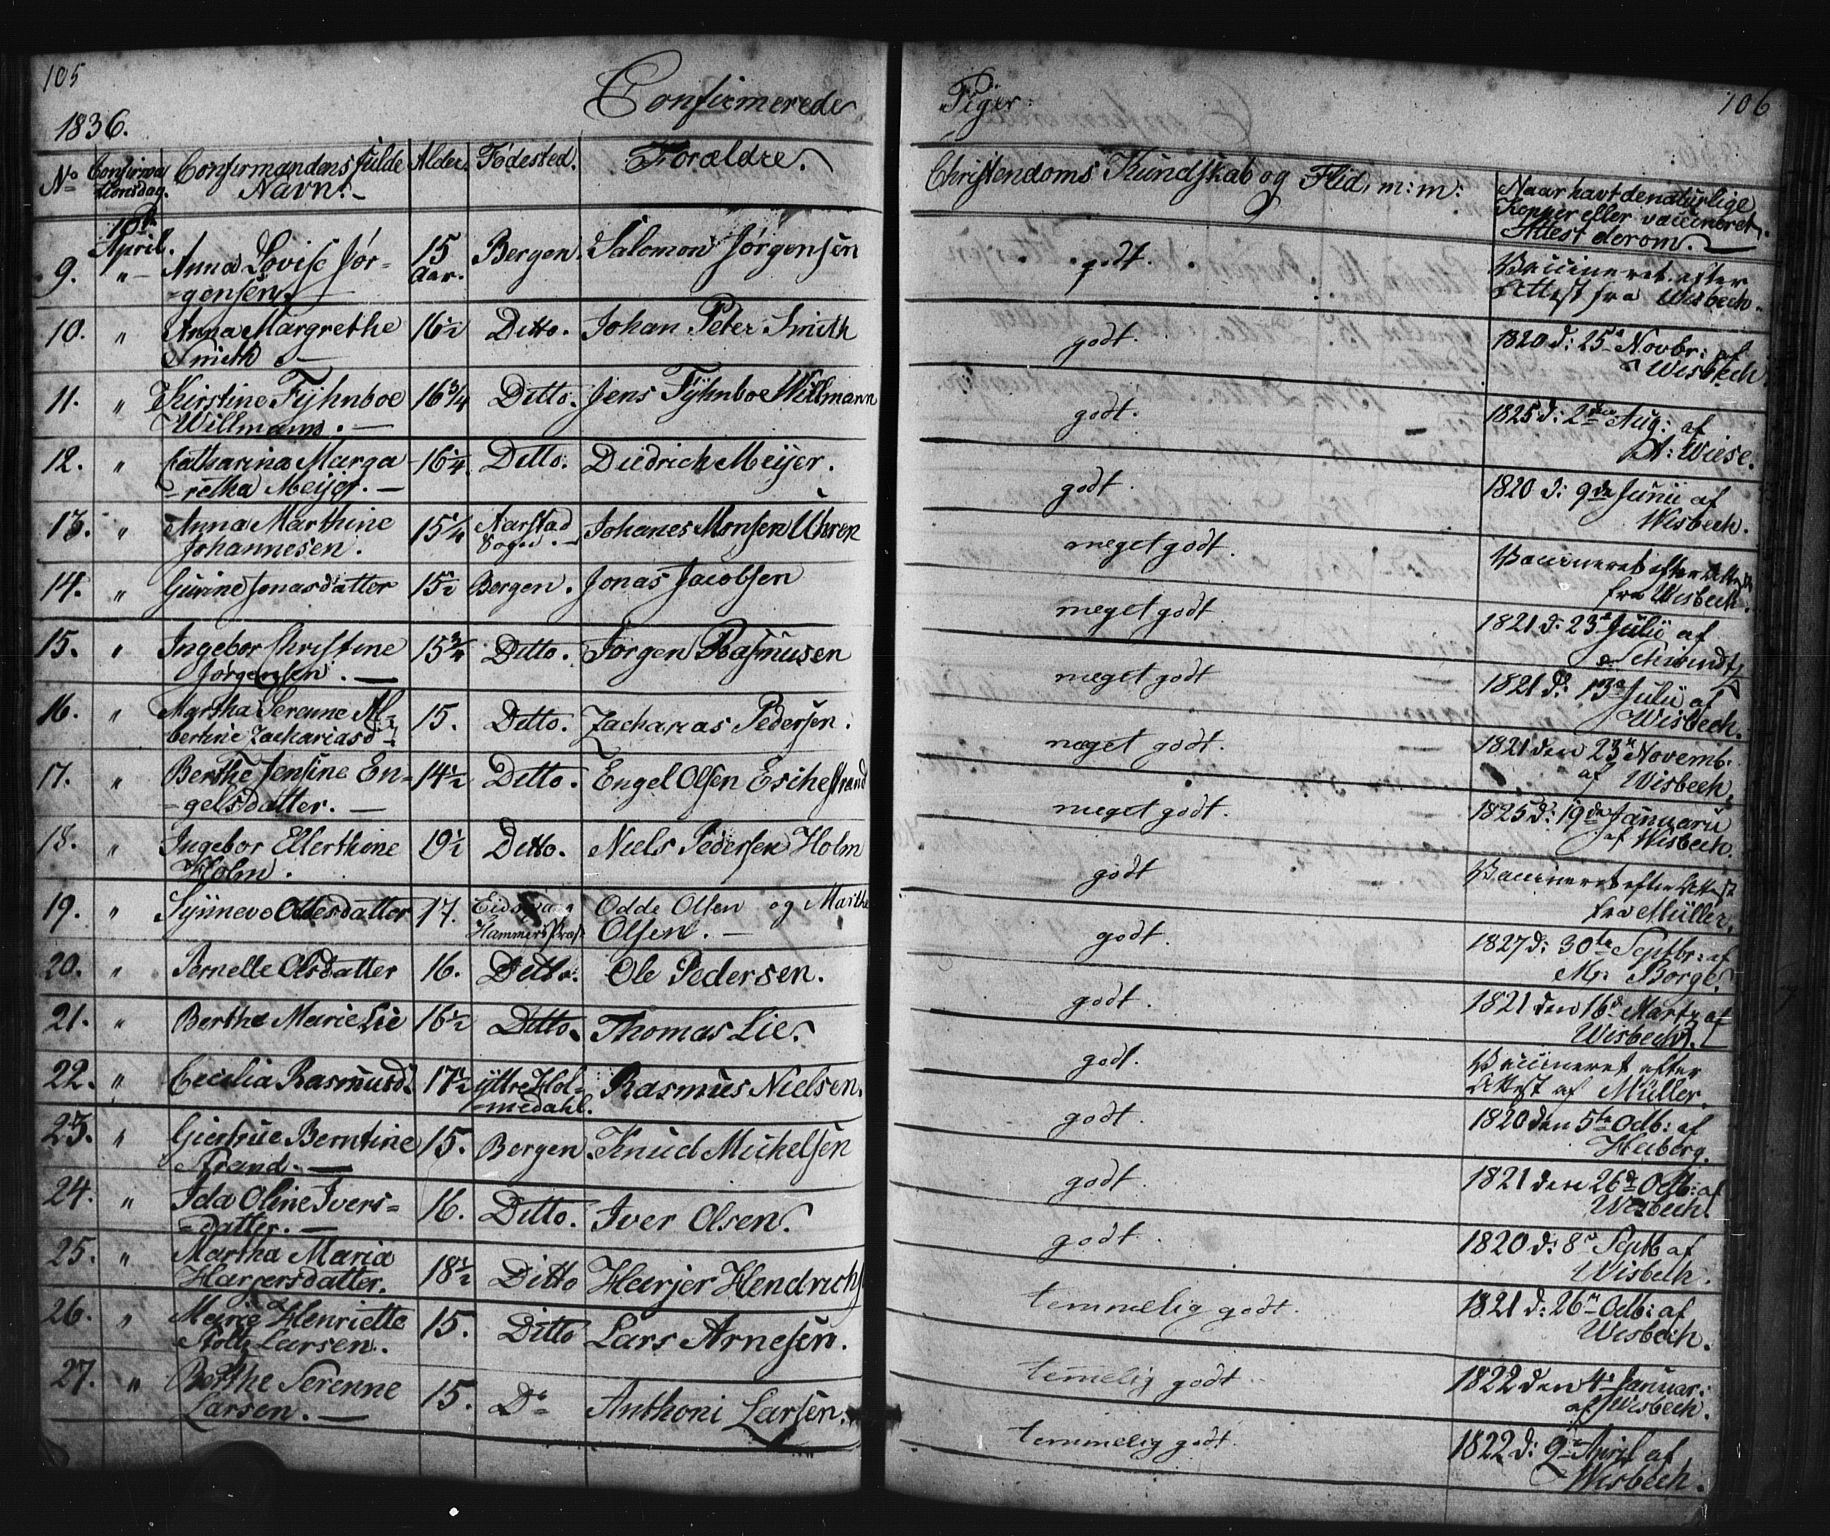 105
Confirmerede
Piger.
106
1836.
No
Confirma
tionsdag.
Confirmandens fulde
Navn.
Alder.
Fødested.
Forældre.
Christendoms Kundskab og Flid, m: m:
Naar havt de naturlige
Kopper eller vaccineret,
Attest derom.
April.
9. " Anna Lovise Jør-
-gensen.
15
Aar.
Bergen. Salomon Jørgensen
godt.
Vaccineret efter
Attest fra Wisbech.
10. " Anna Margrethe
Smith
16½ Ditto. Johan Peter Smith
godt.
1820 d: 25 Novbr: af
Wisbech.
11. " Kirstine Fÿhnboe
Willmann.
16¾ Ditto. Jens Fÿhnboe Willmann
godt.
1825 d: 2den Aug: af
A: Wiese.
12. " Catharina Marga
-retha Meijer.
16¼ Ditto. Diedrich Meijer.
godt.
1820 d: 9de Junii af
Wisbech.
13. " Anna Marthine
Johannesen.
15¼ Aarstad
Sogn. Johanes Monsen Uhren
meget godt.
Vaccineret efter Attest
fra Wisbech.
14. " Gurine Jonasdatter 15½ Bergen. Jonas Jacobsen
meget godt
1821 d: 23 Julii af
Schwindt
15. " Ingebor Christine
Jørgensen.
15¾ Ditto. Jörgen Rasmusen
meget godt
1821 d: 13 Julii af
Wisbech.
16. " Martha Serenne Al-
bertine Zachariasd
15. Ditto. Zacharias Pedersen.
meget godt.
1821 den 23 Novemb:
af Wisbech.
17. " Berthe Jensine En-
-gelsdatter.
14½ Ditto. Engel Olsen Eschestrand
meget godt.
1825 d: 19de Januarii
af Wisbech.
18. " Ingebor Ellerthine
Holm.
19½ Ditto. Niels Pedersen Holm
godt
Vaccineret efter Attest
fra Müller.
19. " Synnevo Ottesdatter 17. Eidsvaag
Hammers Præst: Odde Olsen og Marthe
Olsen.
godt.
1827 d: 30te Septbr: af
M: Borge.
20. " Pernelle Olsdatter 16. Ditto. Ole Pedersen.
godt.
1821 den 16 Martz af
Wisbech.
21. " Berthe Marie Lie 16½ Ditto. Thomas Lie.
godt.
Vaccineret efter
Attest af Müller.
22. " Cecilia Rasmusd. 17½ ÿttre Hol-
medahl. Rasmus Nielsen.
godt
1820 den 5te Octb: af
Heiberg.
23. " Giertrue Berntine
Strand.
15. Bergen. Knud Michelsen
godt
1821 den 26 Octb: af
Wisbech.
24. " Ida Oline Ivers-
-datter.
16. Ditto. Iver Olsen.
godt.
1820 d: 8 Septb af
Wisbech.
25. " Martha Maria
Harjersdatter.
18½ Ditto Harjer Hendrichs
temmelig godt.
1821 d: 26 Octb: af
Wisbech.
26. " Marie Henriette
Stoltz Larsen.
15. Ditto Lars Arnesen.
temelig godt
1822 den 4 Januar:
af Wisbech.
27. " Berthe Serenne
Larsen.
15. Do Anthoni Larsen.
temmelig godt.
1822 d: 9 April af
Wisbech.